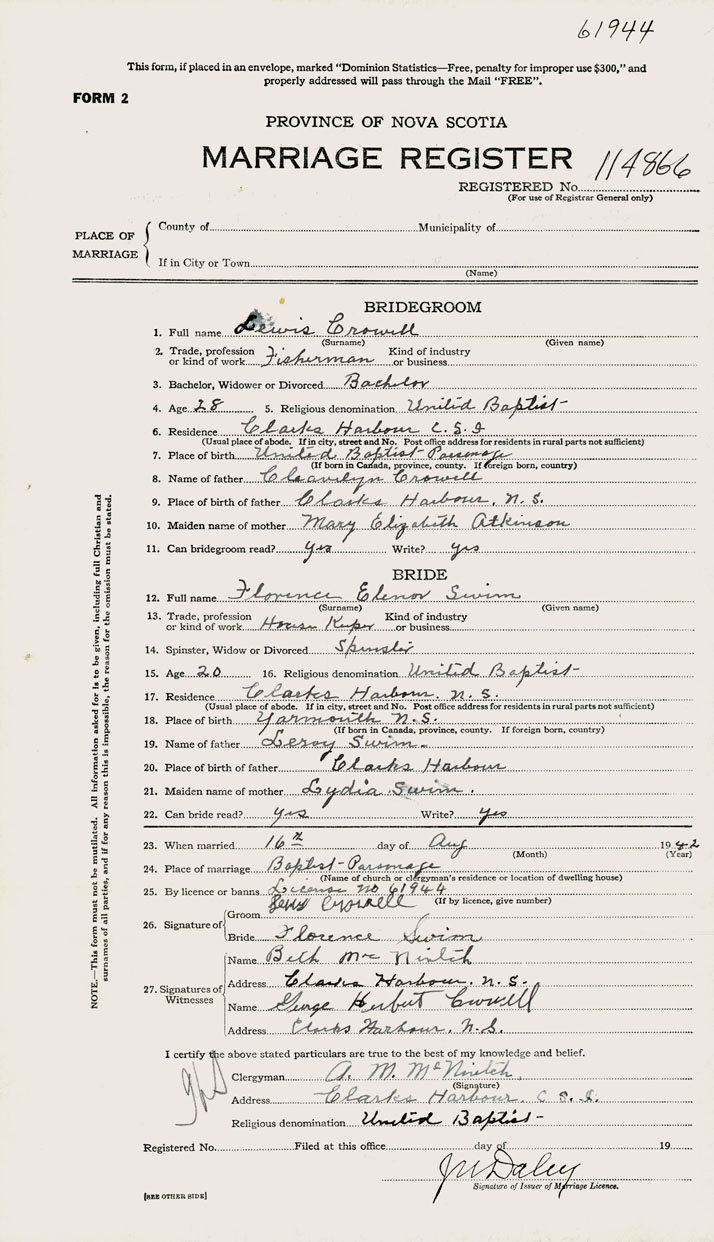 61944
This form, if placed in an envelope, marked "Dominion Statistics—Free, penalty for improper use $300," and
properly addressed will pass through the Mail "FREE".
FORM 2
PROVINCE OF NOVA SCOTIA
MARRIAGE REGISTER 114866
REGISTERED No.
(For use of Registrar General only)
PLACE OF MARRIAGE
County of Municipality of
If in City or Town
(Name)
BRIDEGROOM
1. Full name Lewis Crowell
(Surname) (Given name)
2. Trade, profession or kind of work Fisherman Kind of industry or business
3. Bachelor, Widower or Divorced Bachelor
4. Age 28 5. Religious denomination United Baptist
6. Residence Clarks Harbour C. S. I
(Usual place of abode. If in city, street and No. Post office address for residents in rural parts not sufficient)
7. Place of birth United Baptist Parsonage
(If born in Canada, province, county. If foreign born, country)
8. Name of father Crowell
9. Place of birth of father Clarks Harbour, N. S.
10. Maiden name of mother Mary Elizabeth Atkinson
11. Can bridegroom read? yes Write? yes
BRIDE
12. Full name Florence Elenor Swim
(Surname) (Given name)
13. Trade, profession or kind of work House Keper Kind of industry or business
14. Spinster, Widow or Divorced Spinster
15. Age 20 16. Religious denomination United Baptist
17. Residence Clarks Harbour, N. S.
(Usual place of abode. If in city, street and No. Post office address for residents in rural parts not sufficient)
18. Place of birth Yarmouth N. S.
(If born in Canada, province, county. If foreign born, country)
19. Name of father Leroy Swim
20. Place of birth of father Clarks Harbour
21. Maiden name of mother Lydia Swim.
22. Can bride read? yes Write? yes
23. When married 16th day of Aug 1942
(Month) (Year)
24. Place of marriage Baptist Parsonage
(Name of church or clergyman's residence or location of dwelling house)
25. By licence or banns License no 61944
(If by licence, give number)
26. Signature of
Groom Crowell
Bride Florence Swim
27. Signatures of Witnesses
Name Beth
Address Clarks Harbour, N. S.
Name George Herbert Crowell
Address Clarks Harbour, N. S.
I certify the above stated particulars are true to the best of my knowledge and belief.
Clergyman A. M. McNintch
(Signature)
Address Clarks Harbour, C. S. I.
Religious denomination United Baptist
Registered No. Filed at this office day of 19
J M Daley
Signature of Issuer of Marriage Licence.
[SEE OTHER SIDE]
NOTE.—This form must not be mutilated. All information asked for is to be given, including full Christian and
surnames of all parties, and if for any reason this is impossible, the reason for the omission must be stated.